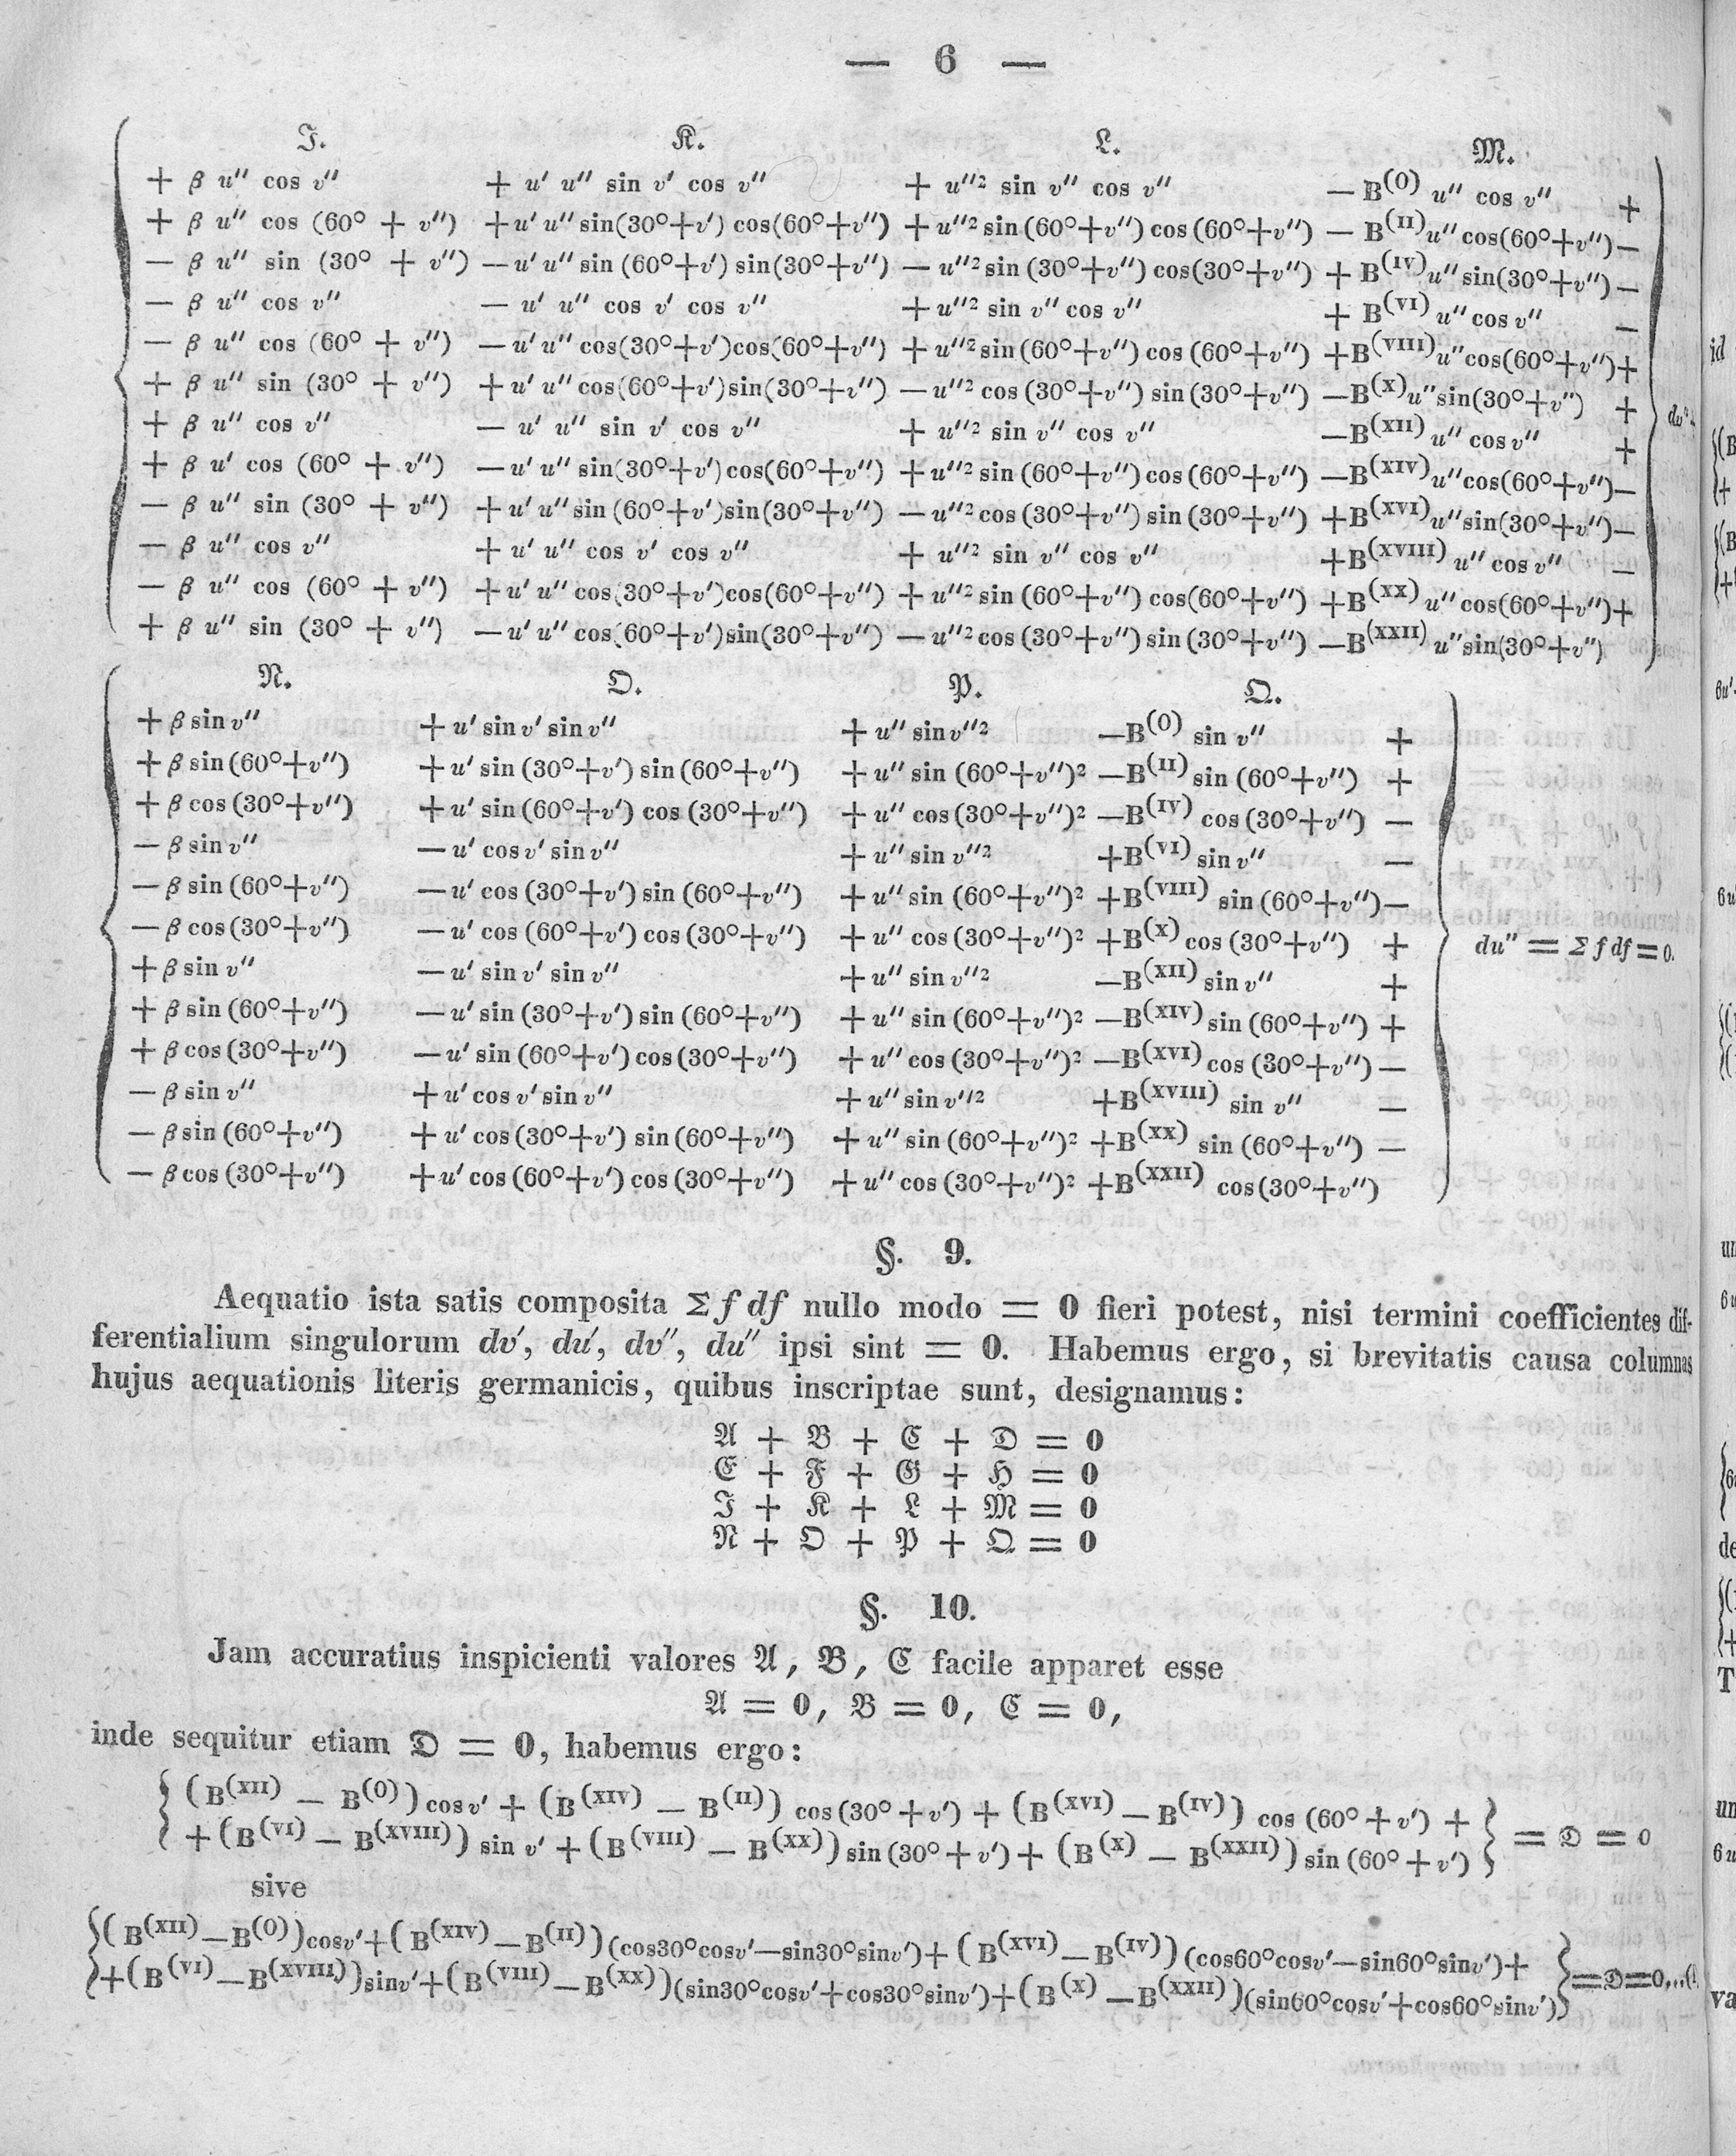 — 6 —
𝔍. 𝔎. 𝔏. 𝔐.
+ β u″ cos v″ + u′ u″ sin v′ cos v″ + u″² sin v″ cos v″ — B⁽⁰⁾ u″ cos v″ +
+ β u″ cos (60° + v″) + u′ u″ sin(30°+v′) cos(60°+v″) + u″² sin (60°+v″) cos (60°+v″) — B⁽ᴵᴵ⁾ u″ cos(60°+v″) —
— β u″ sin (30° + v″) — u′ u″ sin (60°+v′) sin(30°+v″) — u″² sin (30°+v″) cos(30°+v″) + B⁽ᴵⱽ⁾ u″ sin(30°+v″) —
— β u″ cos v″ — u′ u″ cos v′ cos v″ + u″² sin v″ cos v″ + B⁽ⱽᴵ⁾ u″ cos v″ —
— β u″ cos (60° + v″) — u′ u″ cos(30°+v′)cos(60°+v″) + u″² sin(60°+v″) cos (60°+v″) +B⁽ⱽᴵᴵᴵ⁾ u″ cos(60°+v″)+
+ β u″ sin (30° + v″) + u′ u″ cos(60°+v′)sin(30°+v″) — u″² cos (30°+v″) sin (30°+v″) —B⁽ˣ⁾ u″ sin(30°+v″) +
+ β u″ cos v″ — u′ u″ sin v′ cos v″ + u″² sin v″ cos v″ —B⁽ˣᴵᴵ⁾ u″ cos v″ + dv″+
+ β u′ cos (60° + v″) — u′ u″ sin(30°+v′)cos(60°+v″) + u″² sin (60°+v″) cos (60°+v″) —B⁽ˣᴵⱽ⁾ u″ cos(60°+v″)—
— β u″ sin (30° + v″) + u′ u″ sin (60°+v′)sin(30°+v″) — u″² cos (30°+v″) sin (30°+v″) +B⁽ˣⱽᴵ⁾ u″ sin(30°+v″)—
— β u″ cos v″ + u′ u″ cos v′ cos v″ + u″² sin v″ cos v″ +B⁽ˣⱽᴵᴵᴵ⁾ u″ cos v″ —
— β u″ cos (60° + v″) + u′ u″ cos(30°+v′)cos(60°+v″) + u″² sin (60°+v″) cos(60°+v″) +B⁽ˣˣ⁾ u″ cos(60°+v″)+
+ β u″ sin (30° + v″) — u′ u″ cos(60°+v′)sin(30°+v″) — u″² cos (30°+v″) sin (30°+v″) —B⁽ˣˣᴵᴵ⁾ u″ sin(30°+v″)
𝔑. 𝔒. 𝔓. 𝔔.
+ β sin v″ + u′ sin v′ sin v″ + u″ sin v″² —B⁽⁰⁾ sin v″ +
+ β sin (60°+v″) + u′ sin (30°+v′) sin (60°+v″) + u″ sin (60°+v″)² —B⁽ᴵᴵ⁾ sin (60°+v″) +
+ β cos (30°+v″) + u′ sin (60°+v′) cos (30°+v″) + u″ cos (30°+v″)² —B⁽ᴵⱽ⁾ cos (30°+v″) —
— β sin v″ — u′ cos v′ sin v″ + u″ sin v″² +B⁽ⱽᴵ⁾ sin v″ —
— β sin (60°+v″) — u′ cos (30°+v′) sin (60°+v″) + u″ sin (60°+v″)² +B⁽ⱽᴵᴵᴵ⁾ sin (60°+v″)—
— β cos (30°+v″) — u′ cos (60°+v′) cos (30°+v″) + u″ cos (30°+v″)² +B⁽ˣ⁾ cos (30°+v″) + du″ = Σ f df = 0.
+ β sin v″ — u′ sin v′ sin v″ + u″ sin v″² —B⁽ˣᴵᴵ⁾ sin v″ +
+ β sin (60°+v″) — u′ sin (30°+v′) sin (60°+v″) + u″ sin (60°+v″)² —B⁽ˣᴵⱽ⁾ sin (60°+v″) +
+ β cos (30°+v″) — u′ sin (60°+v′) cos (30°+v″) + u″ cos (30°+v″)² —B⁽ˣⱽᴵ⁾ cos (30°+v″) —
— β sin v″ + u′ cos v′ sin v″ + u″ sin v″² +B⁽ˣⱽᴵᴵᴵ⁾ sin v″ —
— β sin (60°+v″) + u′ cos (30°+v′) sin (60°+v″) + u″ sin (60°+v″)² +B⁽ˣˣ⁾ sin (60°+v″) —
— β cos (30°+v″) + u′ cos (60°+v′) cos (30°+v″) + u″ cos (30°+v″)² +B⁽ˣˣᴵᴵ⁾ cos (30°+v″)
§. 9.
Aequatio ista satis composita Σ f df nullo modo = 0 fieri potest, nisi termini coefficientes dif-
ferentialium singulorum dv′, du′, dv″, du″ ipsi sint = 0. Habemus ergo, si brevitatis causa columnas
hujus aequationis literis germanicis, quibus inscriptae sunt, designamus:
𝔄 + 𝔅 + ℭ + 𝔇 = 0
𝔈 + 𝔉 + 𝔊 + ℌ = 0
𝔍 + 𝔎 + 𝔏 + 𝔐 = 0
𝔑 + 𝔒 + 𝔓 + 𝔔 = 0
§. 10.
Jam accuratius inspicienti valores 𝔄, 𝔅, ℭ facile apparet esse
𝔄 = 0, 𝔅 = 0, ℭ = 0,
inde sequitur etiam 𝔇 = 0, habemus ergo:
{ (B⁽ˣᴵᴵ⁾ — B⁽⁰⁾) cos v′ + (B⁽ˣᴵⱽ⁾ — B⁽ᴵᴵ⁾) cos (30° + v′) + (B⁽ˣⱽᴵ⁾ — B⁽ᴵⱽ⁾) cos (60° + v′) +
+ (B⁽ⱽᴵ⁾ — B⁽ˣⱽᴵᴵᴵ⁾) sin v′ + (B⁽ⱽᴵᴵᴵ⁾ — B⁽ˣˣ⁾) sin (30° + v′) + (B⁽ˣ⁾ — B⁽ˣˣᴵᴵ⁾) sin (60° + v′) } = 𝔇 = 0
sive
{ (B⁽ˣᴵᴵ⁾—B⁽⁰⁾)cosv′+(B⁽ˣᴵⱽ⁾—B⁽ᴵᴵ⁾)(cos30°cosv′—sin30°sinv′)+(B⁽ˣⱽᴵ⁾—B⁽ᴵⱽ⁾)(cos60°cosv′—sin60°sinv′)+
+(B⁽ⱽᴵ⁾—B⁽ˣⱽᴵᴵᴵ⁾)sinv′+(B⁽ⱽᴵᴵᴵ⁾—B⁽ˣˣ⁾)(sin30°cosv′+cos30°sinv′)+(B⁽ˣ⁾—B⁽ˣˣᴵᴵ⁾)(sin60°cosv′+cos60°sinv′) }=𝔇=0...(